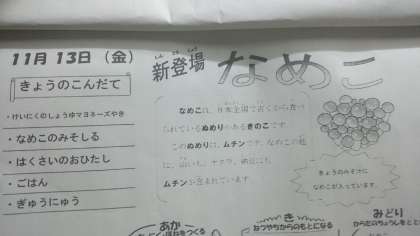 11月 13日 (金)
きょうのこんだて
・けいにくのしょうゆマヨネーズやき
・なめこのみそしる
・はくさいのおひたし
・ごはん
・ぎゅうにゅう
新登場 なめこ
しんとうじょう
なめこは、日本全国で古くから食べ
られているぬめりのあるきのこです。
このぬめりは、ムチンです。なめこの他
に、山いも、オクラ、納豆にも
ムチンが含まれています。
きょうのみそ汁に
なめこが入っています。
あか
をつくる
き
ねつやちからのもとになる
みどり
からだのちょうしをとと